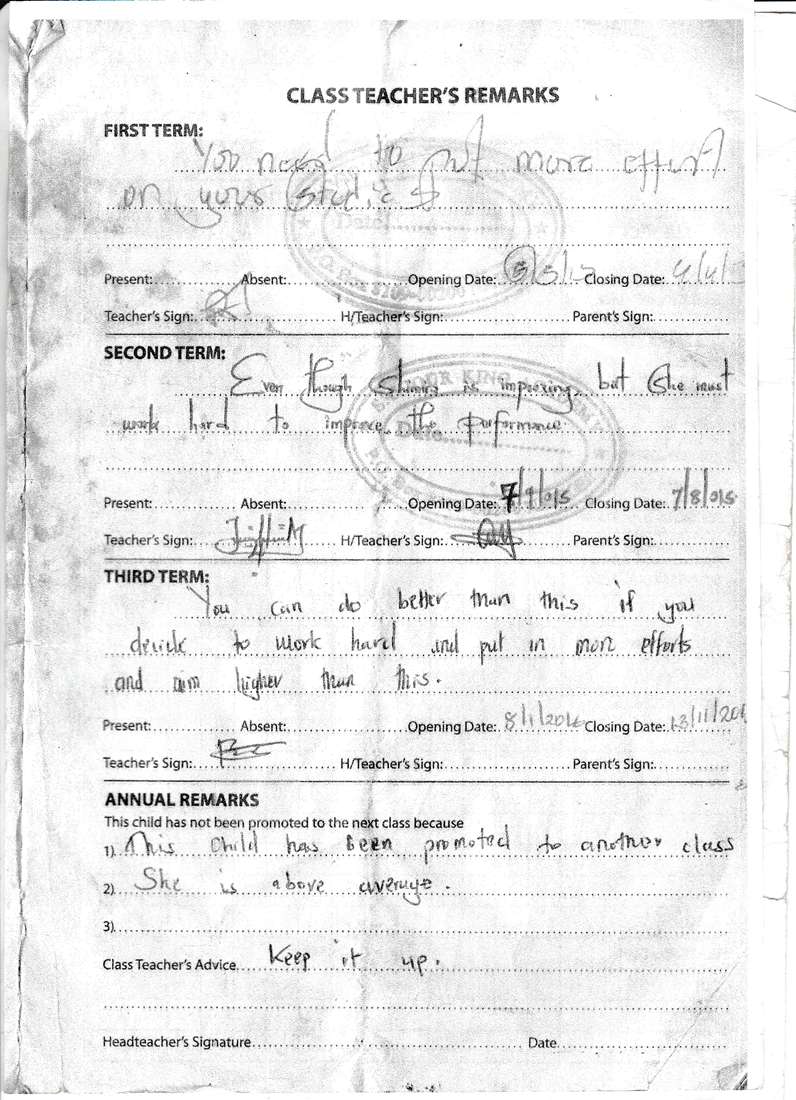 CLASS TEACHER'S REMARKS
FIRST TERM:
You need to put more effort
on your studies
Present: Absent: Opening Date: 5/5/ Closing Date: 4/4/
Teacher's Sign: H/Teacher's Sign: Parent's Sign:
SECOND TERM:
Even though is improving, but she must
work hard to improve the performance
Date
Present: Absent: Opening Date: 7/9/015 Closing Date: 7/8/015
Teacher's Sign: H/Teacher's Sign: Parent's Sign:
THIRD TERM:
You can do better than this if you
decide to work hard and put in more efforts
and aim higher than this.
Present: Absent: Opening Date: 8/1/2016 Closing Date: 13/11/201
Teacher's Sign: H/Teacher's Sign: Parent's Sign:
ANNUAL REMARKS
This child has not been promoted to the next class because
1) This child has been promoted to another class
2) She is above average.
3)
Class Teacher's Advice Keep it up.
Headteacher's Signature Date